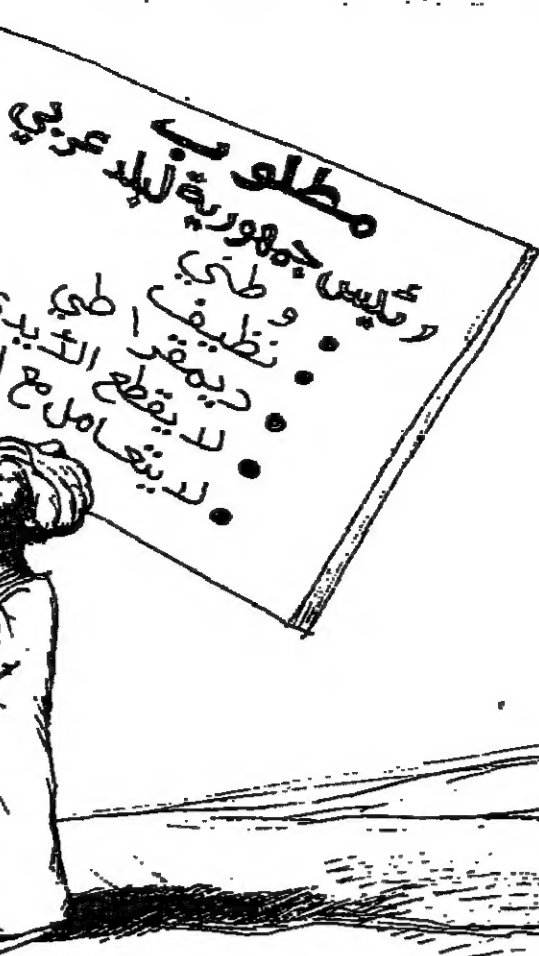 مطلوب
رئيس جمهورية لبلد عربي
• وطني
• نظيف
• ديمقراطي
• لا يقطع الأيدي
• لا يتعامل مع